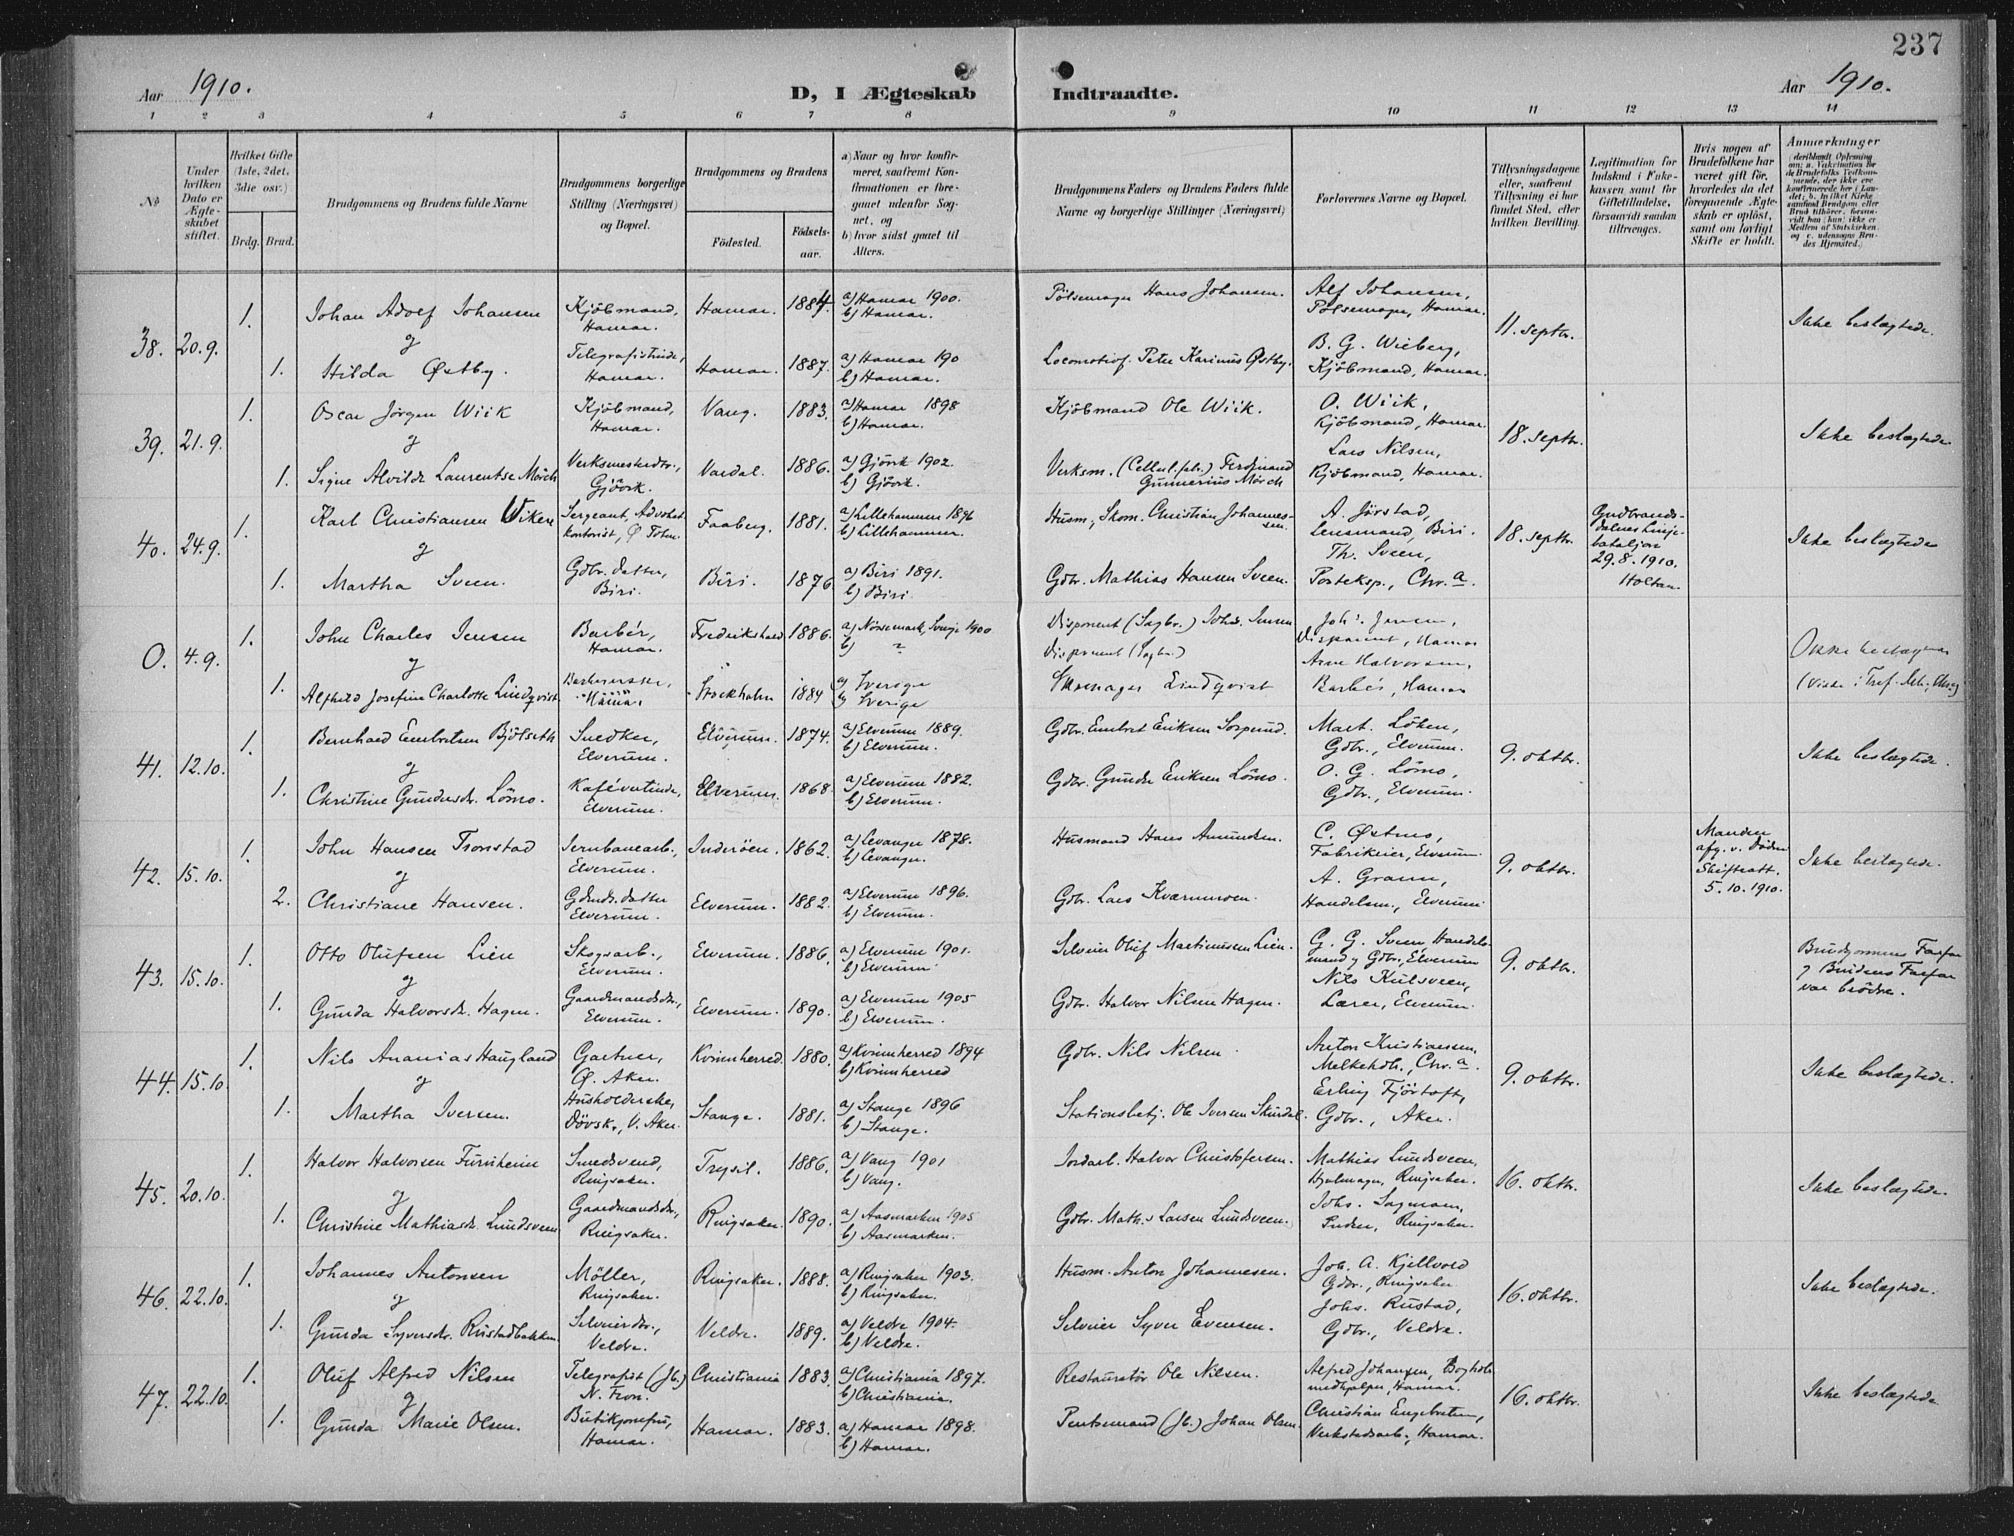 237
Aar 1910.
D, I Ægteskab Indtraadte.
Aar 1910.
1 2 3 4 5 6 7 8 9 10 11 12 13 14
No
Under hvilken Dato er Ægteskabet stiftet.
Hvilket Gifte (1ste, 2det, 3die osv.)
Brdg. Brud.
Brudgommens og Brudens fulde Navne
Brudgommens borgerlige Stilling (Næringsvei) og Bopæl.
Brudgommens og Brudens
Fødested. Fødselsaar.
a) Naar og hvor konfirmeret, saafremt Konfirmationen er foregaaet udenfor Sognet, og
b) hvor sidst gaaet til Alters.
Brudgommens Faders og Brudens Faders fulde Navne og borgerlige Stillinger (Næringsvei)
Forlovernes Navne og Bopæl.
Tillysningsdagene eller, saafremt Tillysning ei har fundet Sted, efter hvilken Bevilling.
Legitimation for Indskud i Enkekassen samt for Giftetilladelse, forsaavidt saadan tiltrænges.
Hvis nogen af Brudefolkene har været gift før, hvorledes da det foregaaende Ægteskab er opløst, samt om lovligt Skifte er holdt.
Anmærkninger
38. 20.9. 1. Johan Adolf Johansen Kjøbmand, Hamar. Hamar. 1884. a) Hamar 1900. b) Hamar. Pølsemager Hans Johansen. Alf Johansen, Pølsemager, Hamar. 11. septbr. Ikke beslægtede.
og
1. Hilda Østby. Telegrafistinde, Hamar. Hamar. 1887. a) Hamar 190 b) Hamar. Locomotivf. Peter Karinius Østby. B. G. Wieberg, Kjøbmand, Hamar.
39. 21.9. 1. Oscar Jørgen Wiik Kjøbmand, Hamar. Vang. 1883. a) Hamar 1898 b) Hamar. Kjøbmand Ole Wiik. O. Wiik, Kjøbmand, Hamar. 18. septbr. Ikke beslægtede
og
1. Signe Alvilde Laurentse Mørch Verksmesterdtr., Gjøvik. Vardal. 1886. a) Gjøvik 1902. b) Gjøvik. Verksm. (Cellul.fabr.) Ferdinand Gunnerius Mørch Lars Nilsen, Kjøbmand, Hamar.
40. 24.9. 1. Karl Christiansen Wiken Sergeant, Advokatkontorist, Ø. Toten. Faaberg. 1881. a) Lillehammer 1896 b) Lillehammer. Husm., Skom. Christian Johannessen. A. Jørstad, Lensmand, Biri. 18. septbr. Gudbrandsdalens Linjebataljon 29.8.1910. Holtan. Ikke beslægtede
og
1. Martha Sveen. Gdbr. datter, Biri. Biri. 1876 a) Biri 1891. b) Biri Gdbr. Mathias Hansen Sveen. Th. Sveen, Posteksp., Chr.a.
0. 4.9. 1. John Charles Jensen Barbér, Hamar. Fredrikshald 1886. a) Nøssemark, Sverige 1900 b) " Disponent (Sagbr.) Johs. Jensen Joh's. Jensen, Disponent, Hamar Ikke beslægtede
og
1. Alfhild Josefine Charlotte Lindqvist Hamar. Stockholm 1884 a) Sverige b) Sverige Disponent (Sagbr.) Skomager Lindqvist Arne Halvorsen, Barbér, Hamar
41. 12.10. 1. Bernhard Embretsen Bjølseth Snedker, Elverum. Elverum. 1874. a) Elverum 1889. b) Elverum. Gdbr. Embret Eriksen Sorperud. Mart. Løken, Gdbr., Elverum. 9. oktbr. Ikke beslægtede.
og
1. Christine Gundersdr. Lømo. Kafévertinde, Elverum. Elverum. 1868. a) Elverum 1882. b) Elverum. Gdbr. Gunder Eriksen Lømo. O. G. Lømo, Gdbr., Elverum.
42. 15.10. 1. John Hansen Tronstad Jernbanearb., Elverum. Inderøen. 1862. a) Levanger 1878. b) Levanger. Husmand Hans Amundsen. C. Østmo, Fabrikeier, Elverum 9. oktbr. Manden afg. v. Døden Skifteatt. 5.10.1910. Ikke beslægtede.
og
2. Christiane Hansen. Gdmds. datter Elverum. Elverum. 1882. a) Elverum 1896. b) Elverum. Gdbr. Lars Kværnmoen. A. Grann, Handelsm., Elverum
43. 15.10. 1. Otto Olufsen Lien Skogsarb., Elverum. Elverum. 1886. a) Elverum 1901. b) Elverum. Selveier Oluf Martinusen Lien. G. G. Sveen, Handelsmand og Gdbr., Elverum 9. oktbr. Brudgommens Farfar og Brudens Farfar var brødre.
og
1. Gunda Halvorsdr. Hagen. Gaardmandsdr., Elverum. Elverum. 1890. a) Elverum 1905 b) Elverum. Gdbr. Halvor Nilsen Hagen. Nils Kulsveen, Lærer, Elverum.
44. 15.10 1. Nils Ananias Haugland Gartner, Ø. Aker. Kvinnherred. 1880. a) Kvinnherred 1894 b) Kvinnherred Gdbr. Nils Nilsen. Anton Kristiansen, Melkehdl., Chr.a. 9. oktbr. Ikke beslægtede.
og
1. Martha Iversen. Husholderske, V. Aker. Stange. 1881. a) Stange 1896 b) Stange. Stationsbetj. Ole Iversen Skurdal. Erling Fjørtoft, Gdbr., Aker.
45. 20.10. 1. Halvor Halvorsen Furuheim Smedsvend, Ringsaker. Trysil. 1886. a) Vang 1901 b) Vang. Jordarb. Halvor Christofersen. Mathias Lundsveen, Hjulmager, Ringsaker. 16. oktbr. Ikke beslægtede.
og
1. Christine Mathiasdr. Lundsveen Gaardmandsdr., Ringsaker. Ringsaker. 1890. a) Aasmarken 1905 b) Aasmarken. Gdbr. Math.s Larsen Lundsveen. Johs. Sagmoen, Inder, Ringsaker.
46. 22.10. 1. Johannes Antonsen Møller, Ringsaker. Ringsaker. 1888. a) Ringsaker 1903. b) Ringsaker. Husm. Anton Johannesen. Joh. A. Kjellvold Gdbr., Ringsaker 16. oktbr. Ikke beslægtede.
og
1. Gunda Syversdr. Rustadbakken. Selveierdr., Veldre. Veldre. 1889. a) Veldre 1904. b) Veldre. Selveier Syver Evensen. Johs. Rustad, Gdbr., Veldre.
47. 22.10. 1. Oluf Alfred Nilsen Telegrafist (Jb.) N. Fron. Christiania 1883. a) Christiania 1897. b) Christiania. Restauratør Ole Nilsen. Alfred Johansen, Hamar. 16. oktbr. Ikke beslægtede
og
1. Gunda Marie Olsen. Butikjomfru, Hamar. Hamar. 1883. a) Hamar 1898. b) Hamar. Pudsemand (Jb.) Johan Olsen. Christian Engebretsen, Verkstedsarb., Hamar.